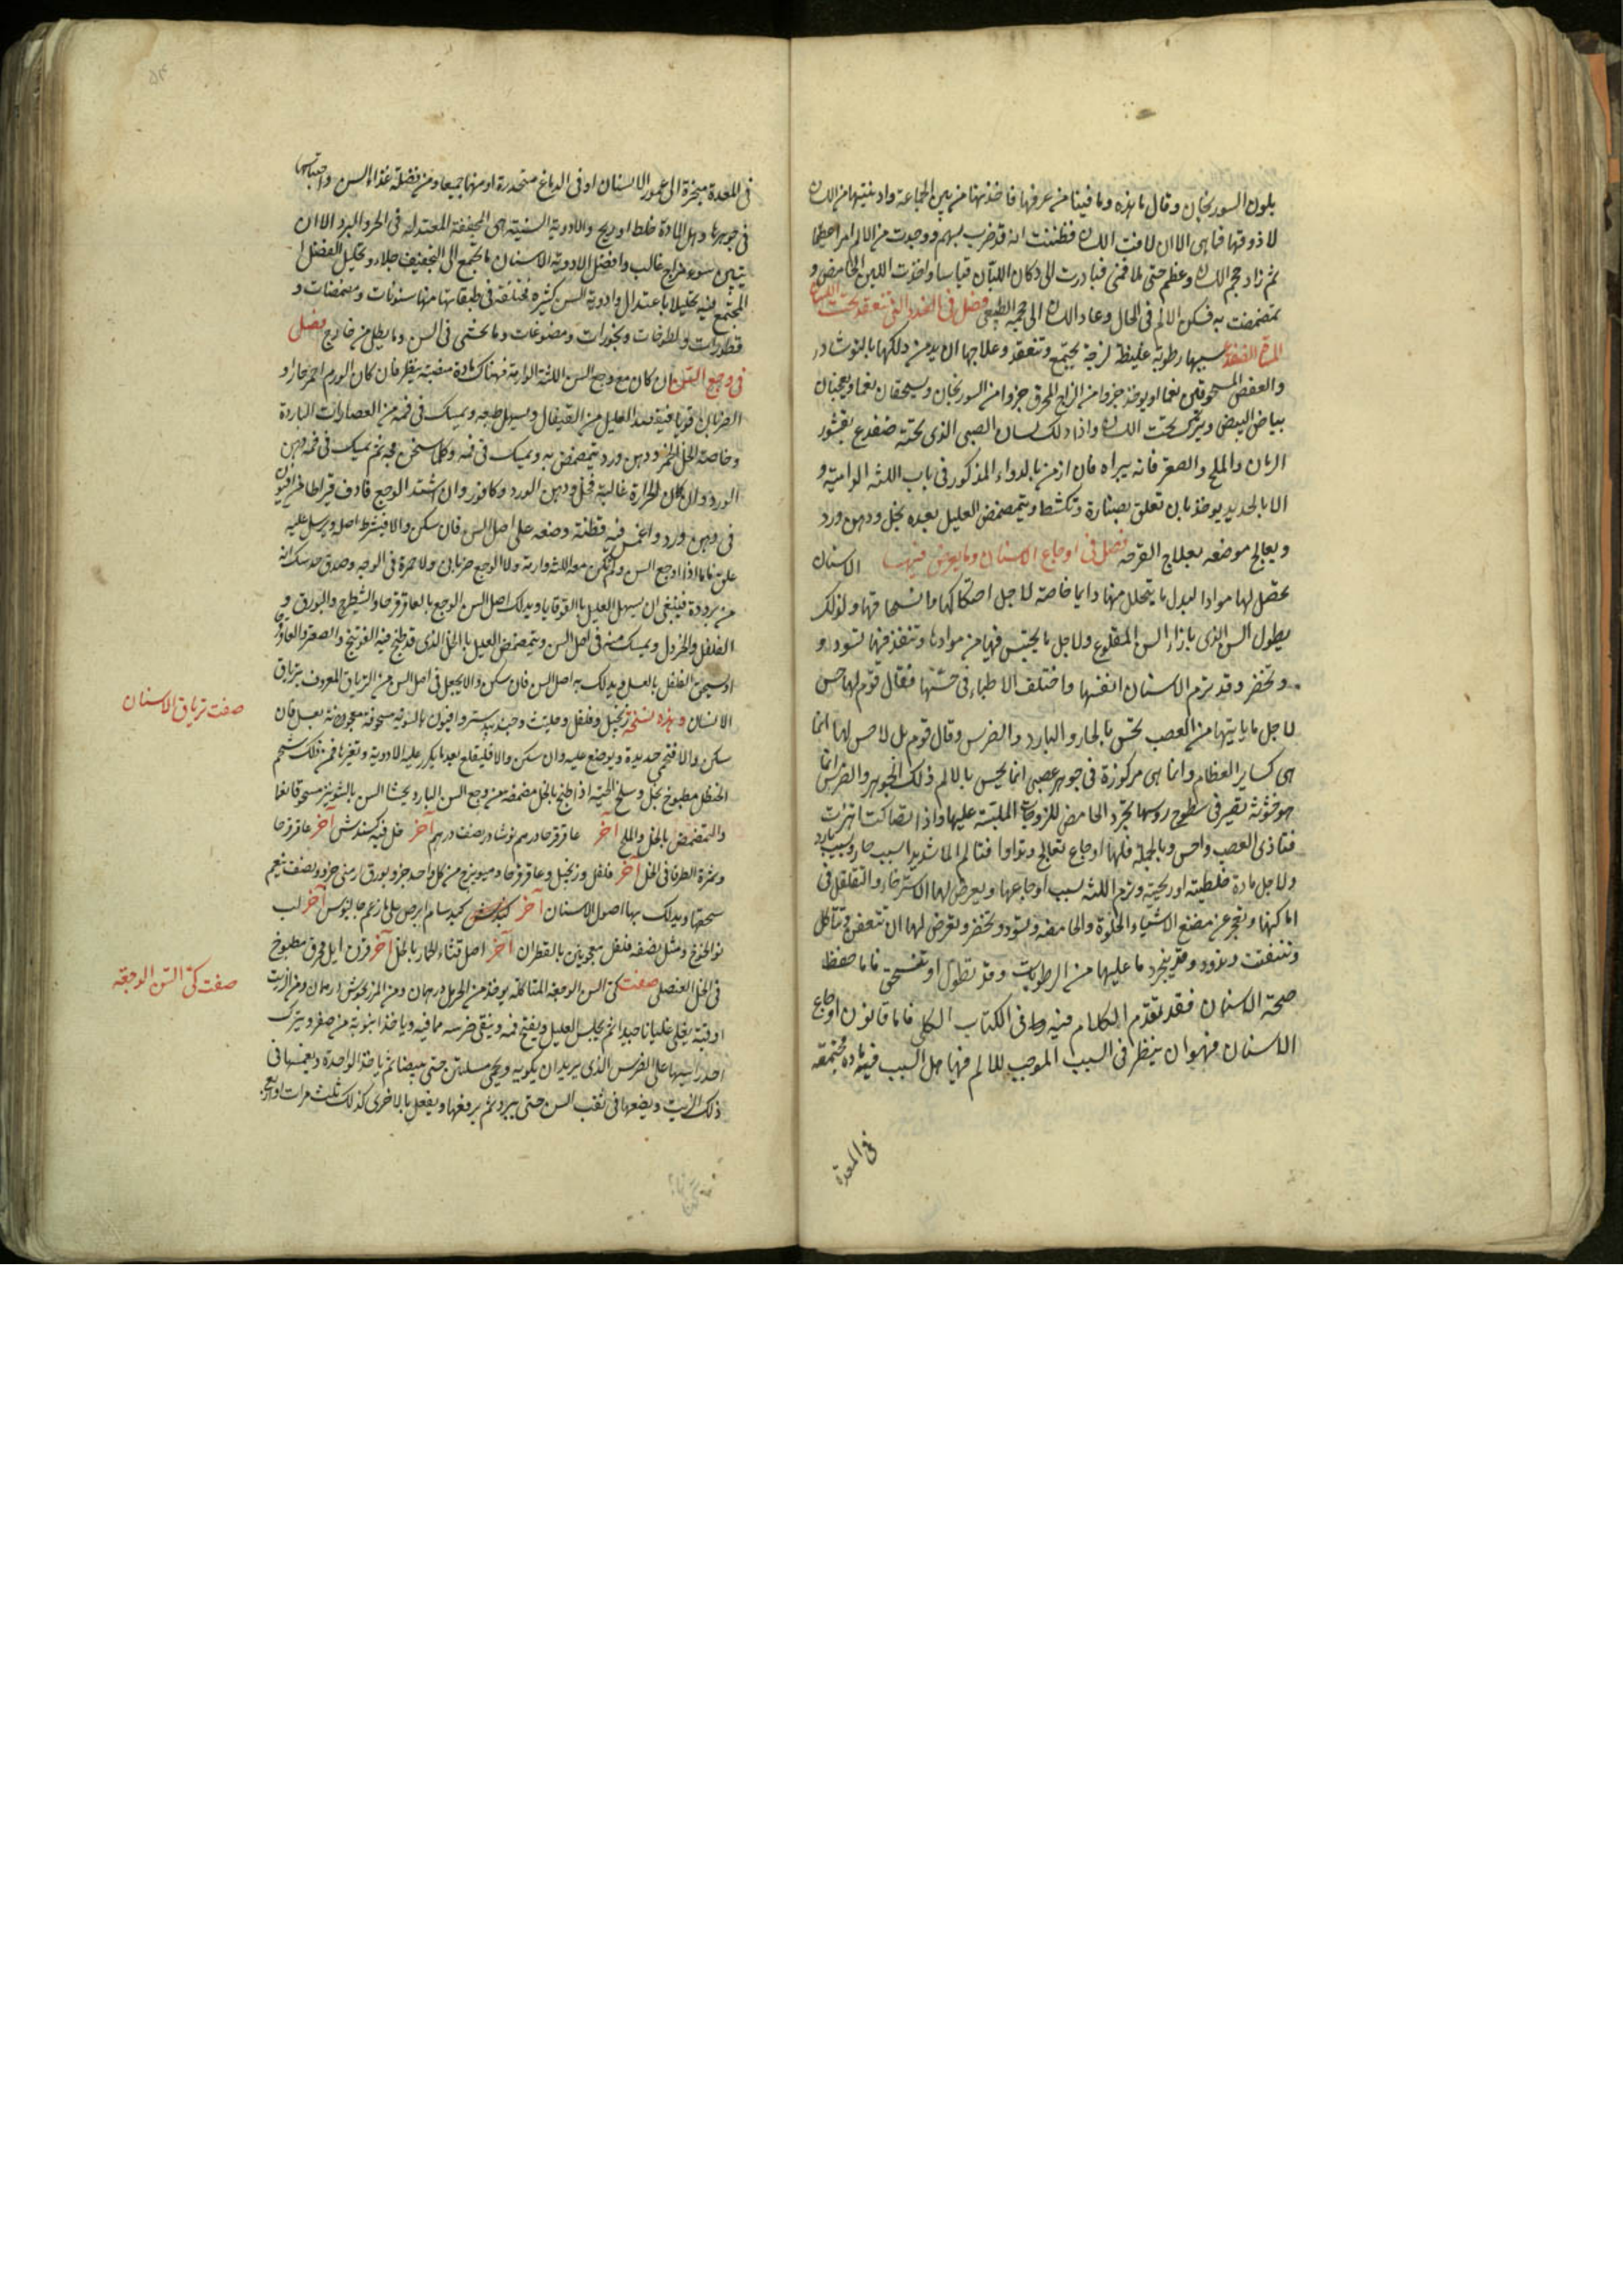 بلون السورنجان وقال ما هذه وما فينا من عرفها فاخذتها من بين الجماعة وادنيتها من اللسان
لا ذوقها فما هى الا ان لاقت اللسان فظننت انه قد ضرب بسهم ووجدت من الالم امرا عظيما
ثم زاد حجم اللسان وعظم حتى ملا فمى فبادرت الى دكان اللبان واخذت اللبن الحامض و
تمضمضت به فسكن الالم فى الحال وعاد اللسان الى حجمه الطبيعى فصل فى الغدد التى تنعقد تحت اللسان
المسماة الضفدع سببها رطوبة غليظة لزجة يجتمع وتنعقد وعلاجها ان يدمن دلكها بالنوشادر
والعفص المسحوقين نعما او يوخذ جزوا من الزاج المحرق جزوا من السورنجان ويسحقان نعما ويعجنان
ببياض البيض ويترك تحت اللسان واذا دلك لسان الصبى الذى تحته ضفدع بقشور
الرمان والملح والصعتر فانه يبراه فان ازمن بالدواء المذكور فى باب اللثة الدامية و
الا بالحديد يوخذ بان تعلق بصنارة وتكشط ويتمضمض العليل بعده بخل ودهن ورد
ويعالج موضعه بعلاج القرحه فصل فى اوجاع الاسنان وما يعرض فيها الاسنان
تحصل لها مواد البدل ما يتحلل منها دايما خاصة لاجل اصتكاكها وانسحاقها ولذلك
يطول السن الذى بازاء السن المقلوع ولاجل ما يحتبس فيها من موادها وتنفذ فيها تسود او
وتخضر وقد ترم الاسنان انفسها واختلف الاطباء فى حسها فقال قوم لها حس
لاجل ما ياتيها من العصب تحس بالحار والبارد والضرس وقال قوم بل لا حس لها انما
هى كساير العظام وانما هى مركوزة فى جوهر عصبى انما يحس بالالم ذلك الجوهر والضرس انما
هو خشونة تصير فى سطوح روسها بجرد الحامض للزوجات الملبسة عليها واذا تصاكت اهتزت
فتاذى العصب واحس وبالجملة فلها اوجاع تعالج وتداوا فتالم الما شديدا بسبب حار وبسبب بارد
ولاجل مادة خلطية او ريحية وترم اللثة بسبب اوجاعها ويعرض لها الاسترخاء والتقلقل فى
اماكنها وتعجز عن مضغ الاشياء الحلوة والحامضه وتسود وتخضر وتعرض لها ان تتعفن وتتاكل
وتتفتت وتدود وقد ينجرد ما عليها من الرطوبات وقد تطول او تنسحق فاما حفظ
صحة الاسنان فقد تقدم الكلام فيه فى الكتاب الكلى فاما قانون اوجاع
الاسنان فهو ان ينظر فى السبب الموجب للالم فيها هل السبب فيه مادة مجتمعة
فى المعدة
فى المعدة مبخرة الى عمور الاسنان او فى الدماغ متحدرة او منهما جميعا ومن فضلة غذاء السن واحتباسها
فى جوهرها وهل المادة خلط او ريح والادوية السنية هى المجففة المعتدله فى الحر والبرد الا ان
يتبين سوء مزاج غالب وافضل الادوية الاسنان ما يجمع الى التجفيف جلاء وتحليل الفضل ا
المجتمع فيه تحليلا باعتدال وادوية السن كثيرة مختلفة فى طبقاتها منها سنونات ومضمضات و
قطورات ولطوخات وبخورات ومضوغات وما يحشى فى السن وما يطلى من خارج فصل
فى وجع السن ان كان مع وجع السن اللثة الوارمة فهناك مادة منصبة ينظر فان كان الورم احمر حار او
الضربان قويا فيفصد العليل من القيفال ويسهل طبعه ويمسك فى فمه من العصارات الباردة
وخاصة الخل الخمر ودهن ورد يتمضمض به ويمسك فى فمه وكلما سخن مجه ثم يمسك فى فمه دهن
الورد وان كان الحرارة غالبة فخل ودهن الورد وكافور وان اشتد الوجع فادف قيراطا من افيون
فى دهن ورد واغمس فيه قطنة وضعه على اصل السن فان سكن والا فيشرط اصله ويرسل عليه
علق فاما اذا اوجع السن ولم تكن معه اللثة وارمة ولا الوجع ضربانى ولا حمرة فى الوجه وصدق حدسك انه
من برودة فينبغى ان يسهل العليل بالقوقايا ويدلك اصل السن الوجع بالعاقرقرحا والشيطرج والبورق و
الفلفل والخردل ويمسك منه فى اصل السن ويتمضمض العليل بالخل الذى قد طبخ فيه الفوتنج والصعتر والعاقر
او يسحق الفلفل بالعسل ويدلك به اصل السن فان سكن والا يجعل فى اصل السن من الترياق المعروف بترياق
الاسنان وهذه نسخته زنجبيل وفلفل وحلتيت وجندبيدستر وافيون بالسويه مسحوقة معجونة بعسل فان
سكن والا فتحمى حديدة ويوضع عليه وان سكن والا فليقلع بعد ما يكرر عليه الادوية وتغيرها فمن ذلك شحم
الحنظل مطبوخ بخل وسلخ الحية اذا طبخ بالخل مضمضه من وجع السن البارد يحشا السن بالشونيز مسحوقا نعما
والتمضمض بالخل والملح آخر عاقرقرحا درهم نوشادر نصف درهم آخر خل فيه كندش آخر عاقرقرحا
وثمرة الطرفا فى الخل آخر فلفل وزنجبيل وعاقرقرحا وميويزج من كل واحد جزو بورق ارمنى جزو ونصف ينعم
سحقها ويدلك بها اصول الاسنان آخر كبد سام ابرص على ما زعم جالينوس آخر لب
نوا الخوخ ومثل نصفه فلفل معجونين بالقطران آخر اصل قثاء الحمار بالخل آخر قرن ايل محرق مطبوخ
فى الخل العنصلى صفت كى السن الوجعه المتاكله يوخذ من الحرمل درهمان ومن المرزنجوش درهمان ومن الزيت
اوقية يغلى غليانا جيدا ثم يجلس العليل ويفتح فمه وينقى ضرسه مما فيه وياخذ انبوبة من صفر ويترك
احد راسيها على الضرس الذى يريد ان يكويه ويحمى مسلتين حتى يبيضا ثم ياخذ الواحدة ويغمسها فى
ذلك الزيت ويضعها فى ثقب السن حتى يبرد ثم يرفعها ويفعل بالاخرى كذلك ثلث مرات او اربع
صفت ترياق الاسنان
صفت كى السن الوجعة